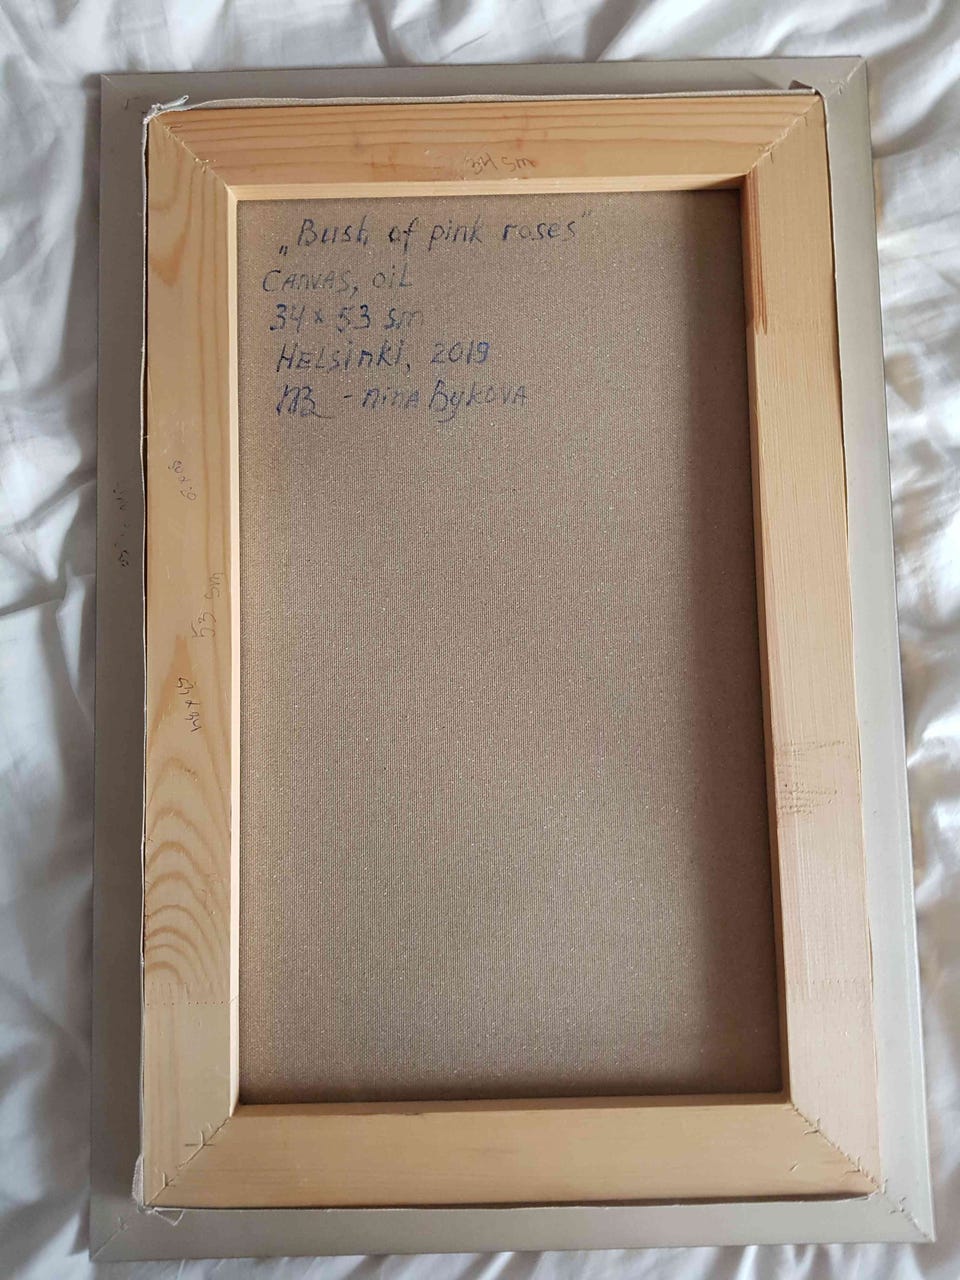 34 sm
„Bush of pink roses"
CANVAS, OIL
34 x 53 sm
HELSINKI, 2019
NB - NINA BYKOVA
53 sm